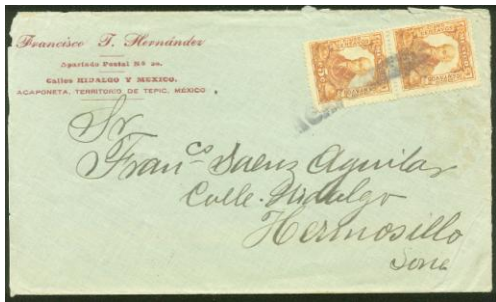 Francisco T. Hernández
Apartado Postal No 20.
Calles HIDALGO Y MEXICO.
ACAPONETA, TERRITORIO DE TEPIC, MEXICO
Sr
Franco Saenz Aguilar
Calle Hidalgo
Hermosillo
Son